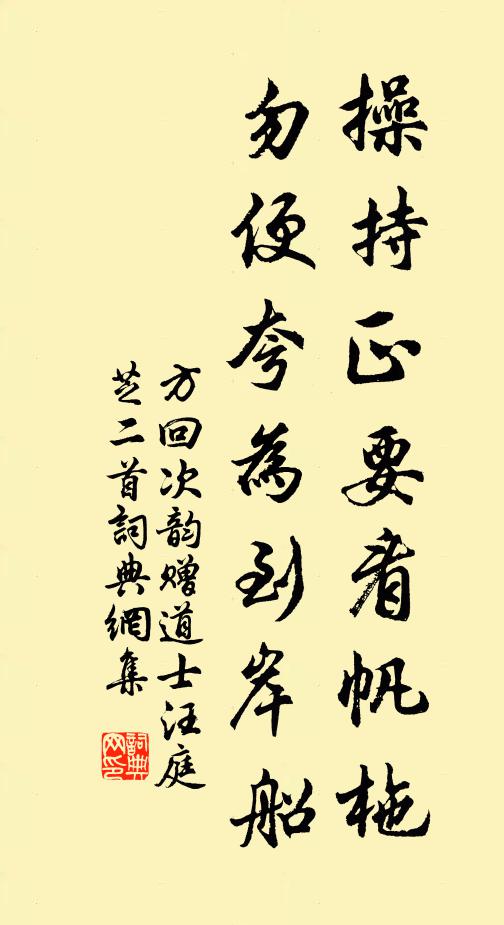 操持正要看帆柂
勿便夸為到岸船
方回次韵赠道士汪庭
芝二首詞典網集
詞典網印